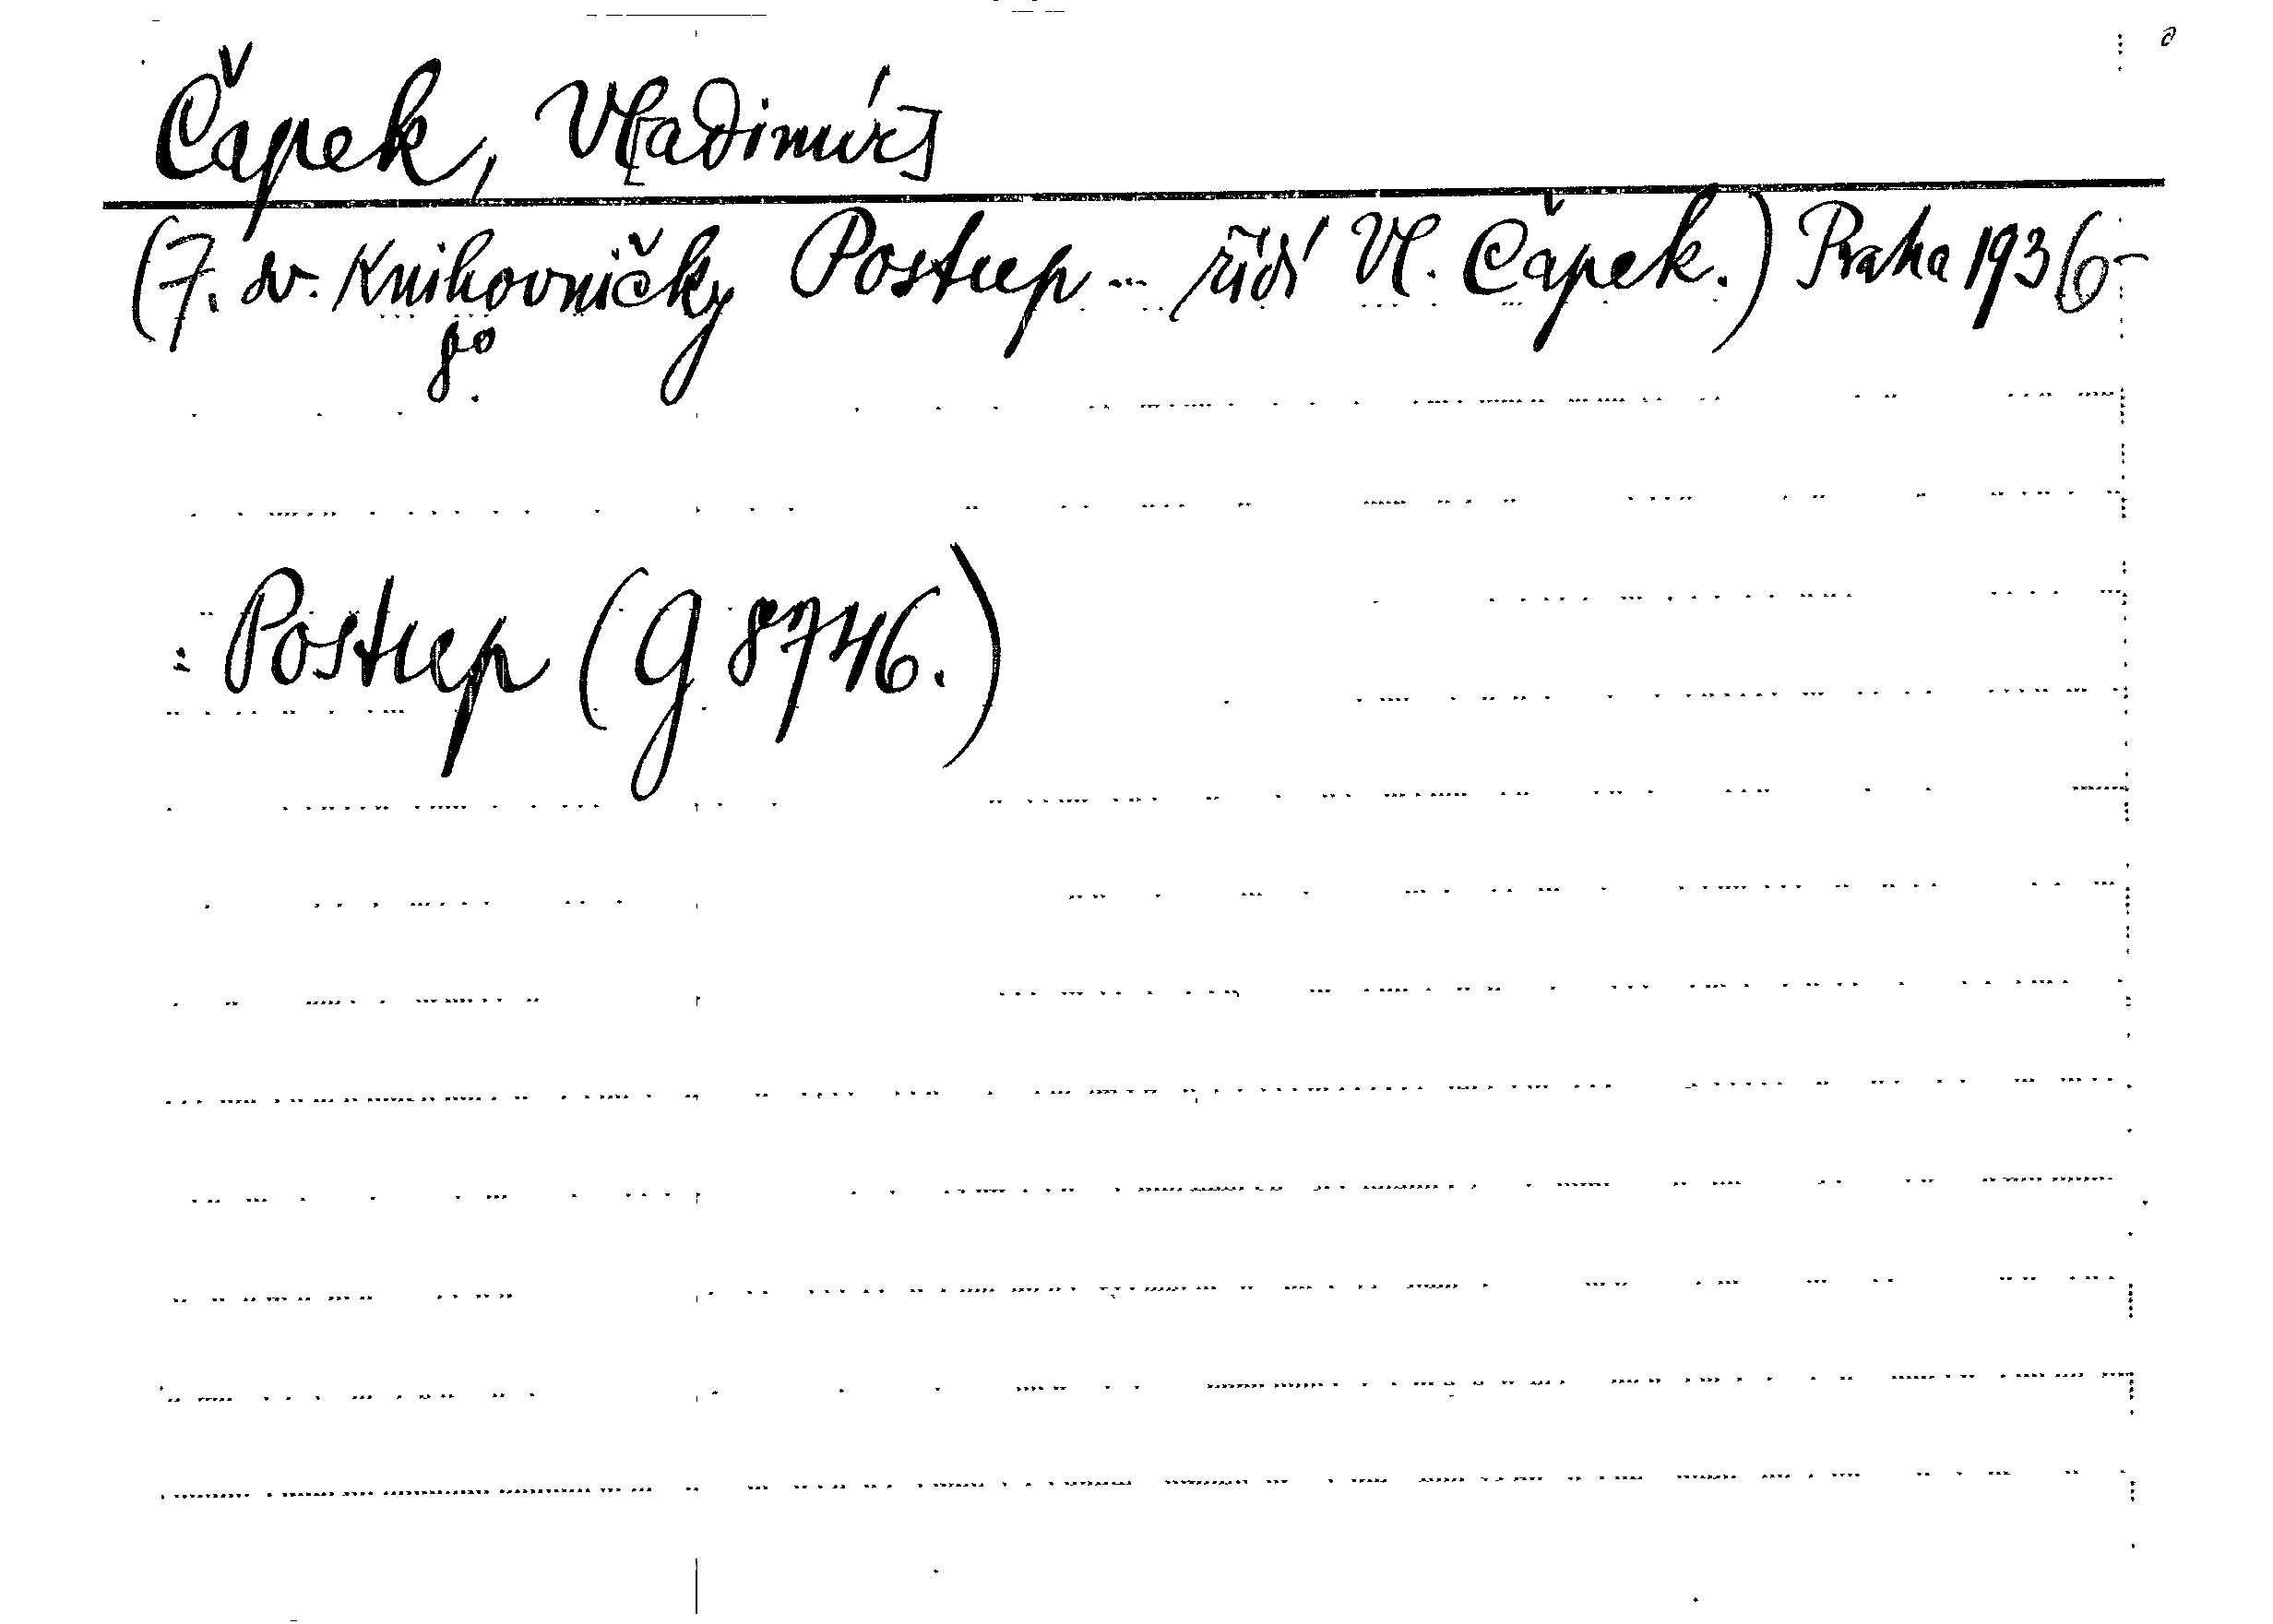 Čapek, Vl[adimír]
(7. sv. Knihovničky Postup ... řídí Vl. Čapek.) Praha 1936-
8°.
: Postup (G 8746.)